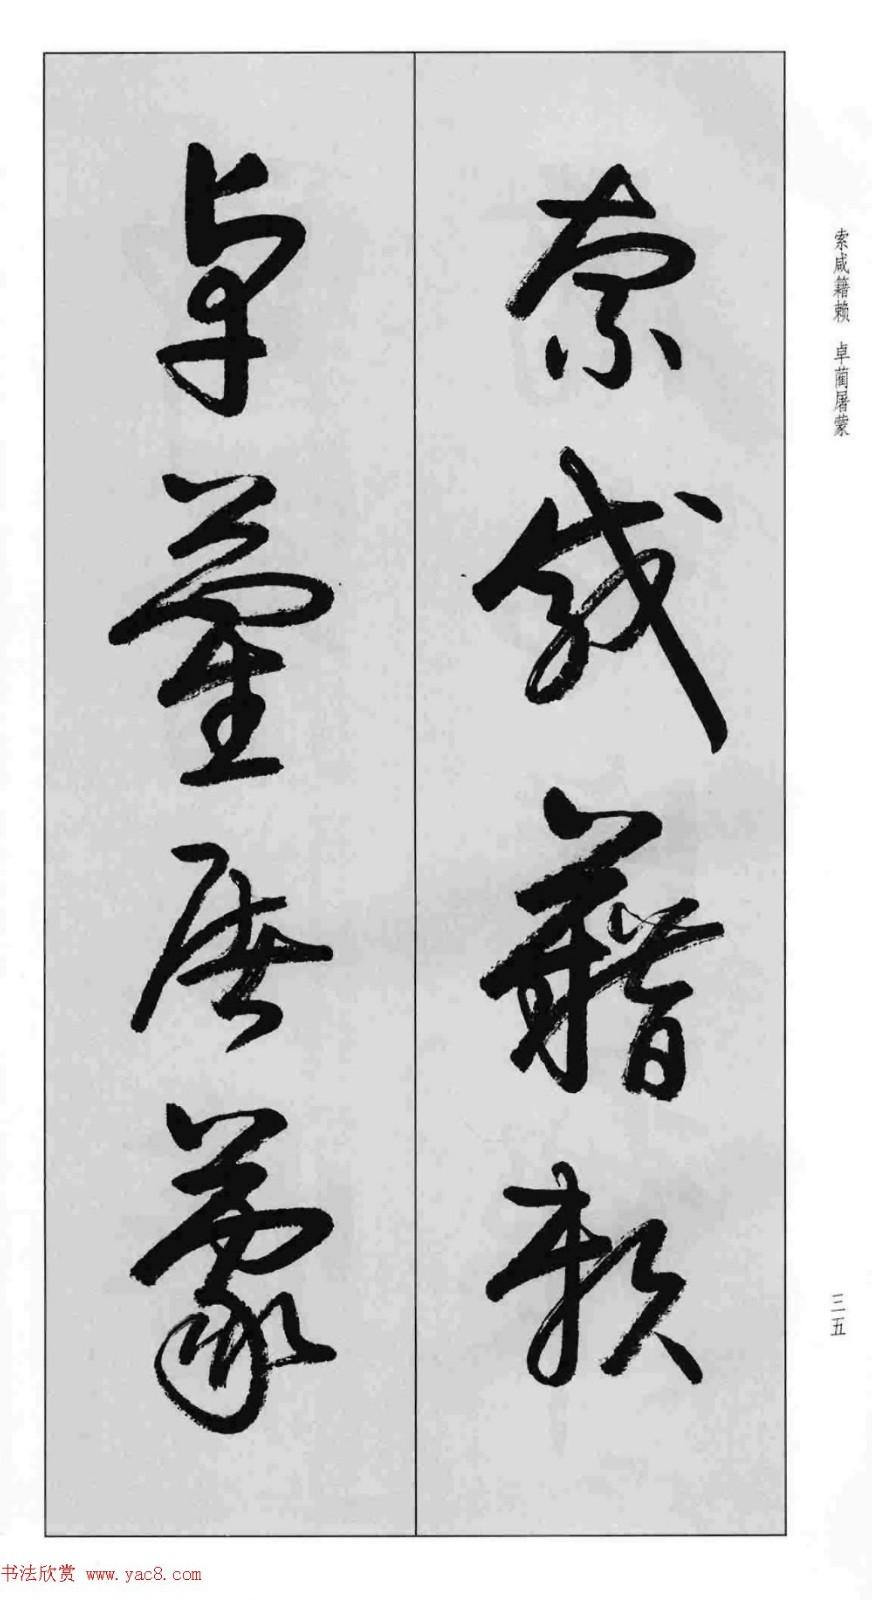 索咸籍赖 卓蔺屠蒙
索咸籍賴
卓藺屠蒙
三五
书法欣赏 www.yac8.com